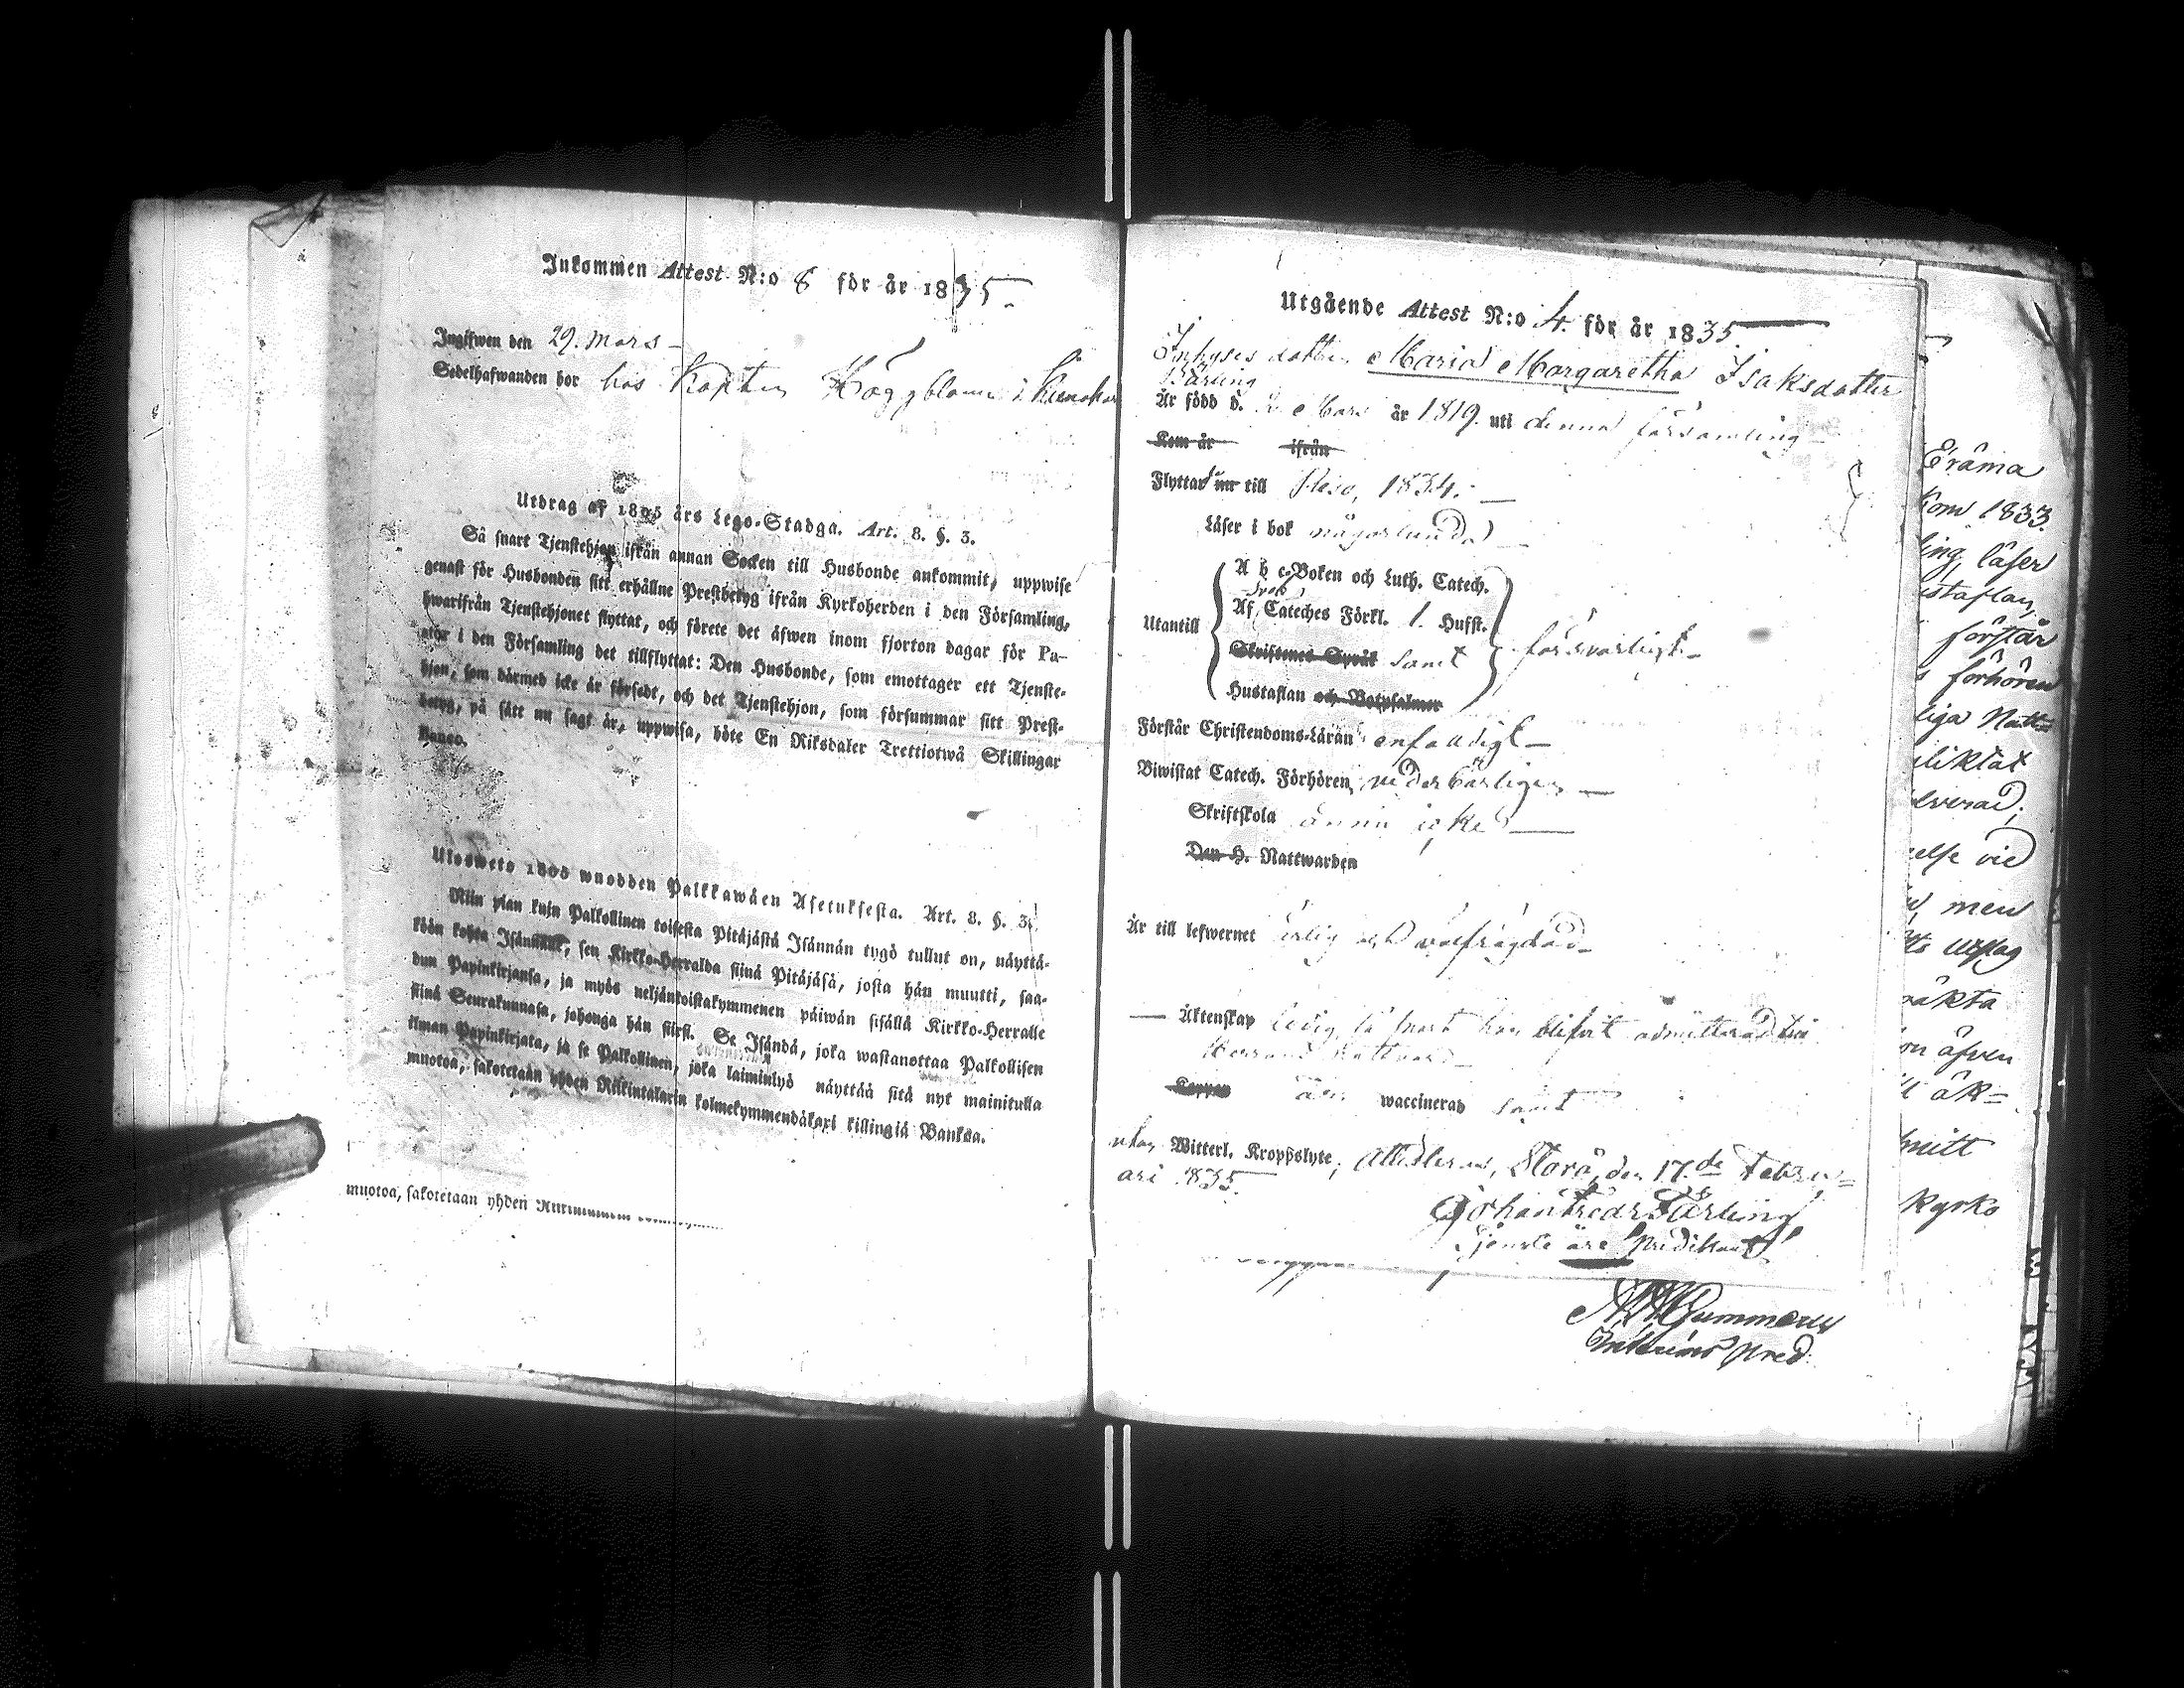 Inkommen Attest N:o 8 för år 1835.
Ingifwen den 29. Mars
Sedelhafwanden bor hos Kapten Häggblom i
Utdrag af 1805 års Lego-Stadga. Art. 8. §. 3.
Så snart Tjenstehjon ifrån annan Socken till Husbonde ankommit, uppwise
genast för Husbonden sitt erhållne Prestbetyg ifrån Kyrkoherden i den Församling,
hwarifrån Tjenstehjonet flyttat, och förete det äfwen inom fjorton dagar för Pa-
stor i den Församling det tillflyttat: Den Husbonde, som emottager ett Tjenste-
hjon, som därmed icke är försedt, och det Tjenstehjon, som försummar sitt Prest-
betyg, på sätt nu sagt är, uppwisa, böte En Riksdaler Trettiotwå Skillingar
Banco.
Ulosweto 1805 wuodden Palkkawäen Asetuksesta. Art. 8. §. 3.
Niin pian kuin Palkollinen toisesta Pitäjästä Isännän tygö tullut on, näyttä-
köön kohta Isännälle, sen Kirkko-Herralda siinä Pitäjäsä, josta hän muutti, saa-
dun Papinkirjansa, ja myös neljäntoistakymmenen päiwän sisällä Kirkko-Herralle
siinä Seurakunnasa, johonga hän siirsi. Se Isändä, joka wastanottaa Palkollisen
ilman Papinkirjata, ja se Palkollinen, joka laiminlyö näyttää sitä nyt mainitulla
muotoa, sakotetaan yhden Riikintalarin kolmekymmendäkaxi killingiä Bankoa.
muotoa, sakotetaan yhden
Utgående Attest N:o 4. för år 1835.
Inhyses dotter Maria Margaretha Isaksdotter
Är född d. Mars år 1819. uti denna församling
Kom år ifrån
Flyttade nu till 1834.
Läser i bok någorlunda
A b c-Boken och Luth. Catech.
Af Cateches Förkl. 1. Husst.
Utantill försvarligt
Skriftenes Språk samt
Hustaflan och Botpsalmer
Förstår Christendoms-Läran enfaldigt
Biwistat Catech. Förhören vederbörligen
Skriftskola ännu icke
Den H. Nattwarden
Är till lefwernet ärlig och välfrägdad
Äktenskap ledig, så snart hon blifvit admitterad till
Herrans Nattvard
Koppor waccinerad samt
utan Witterl. Kroppslyte; Attesteras, Storå, den 17.de Febru-
ari 1835.
Johan Fredr
Tjenste Predikant
Gummerus
Pred.
Eräma
kom 1833
läser
förstår
förhören
liga Natt-
vid
men
äfven
äk-
kyrko